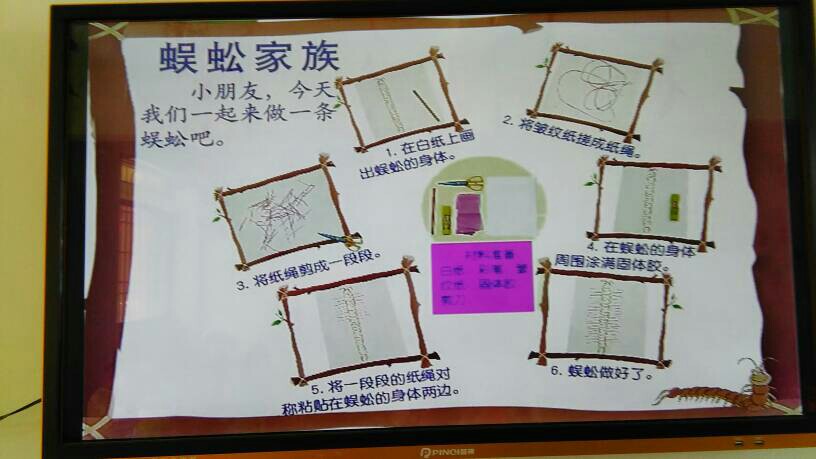 蜈蚣家族
小朋友，今天
我们一起来做一条
蜈蚣吧。
1. 在白纸上画
出蜈蚣的身体。
2. 将皱纹纸搓成纸绳。
3. 将纸绳剪成一段段。
4. 在蜈蚣的身体
周围涂满固体胶。
5. 将一段段的纸绳对
称粘贴在蜈蚣的身体两边。
6. 蜈蚣做好了。
材料准备
白纸 彩笔 皱
纹纸 固体胶
剪刀
PINQI品奇